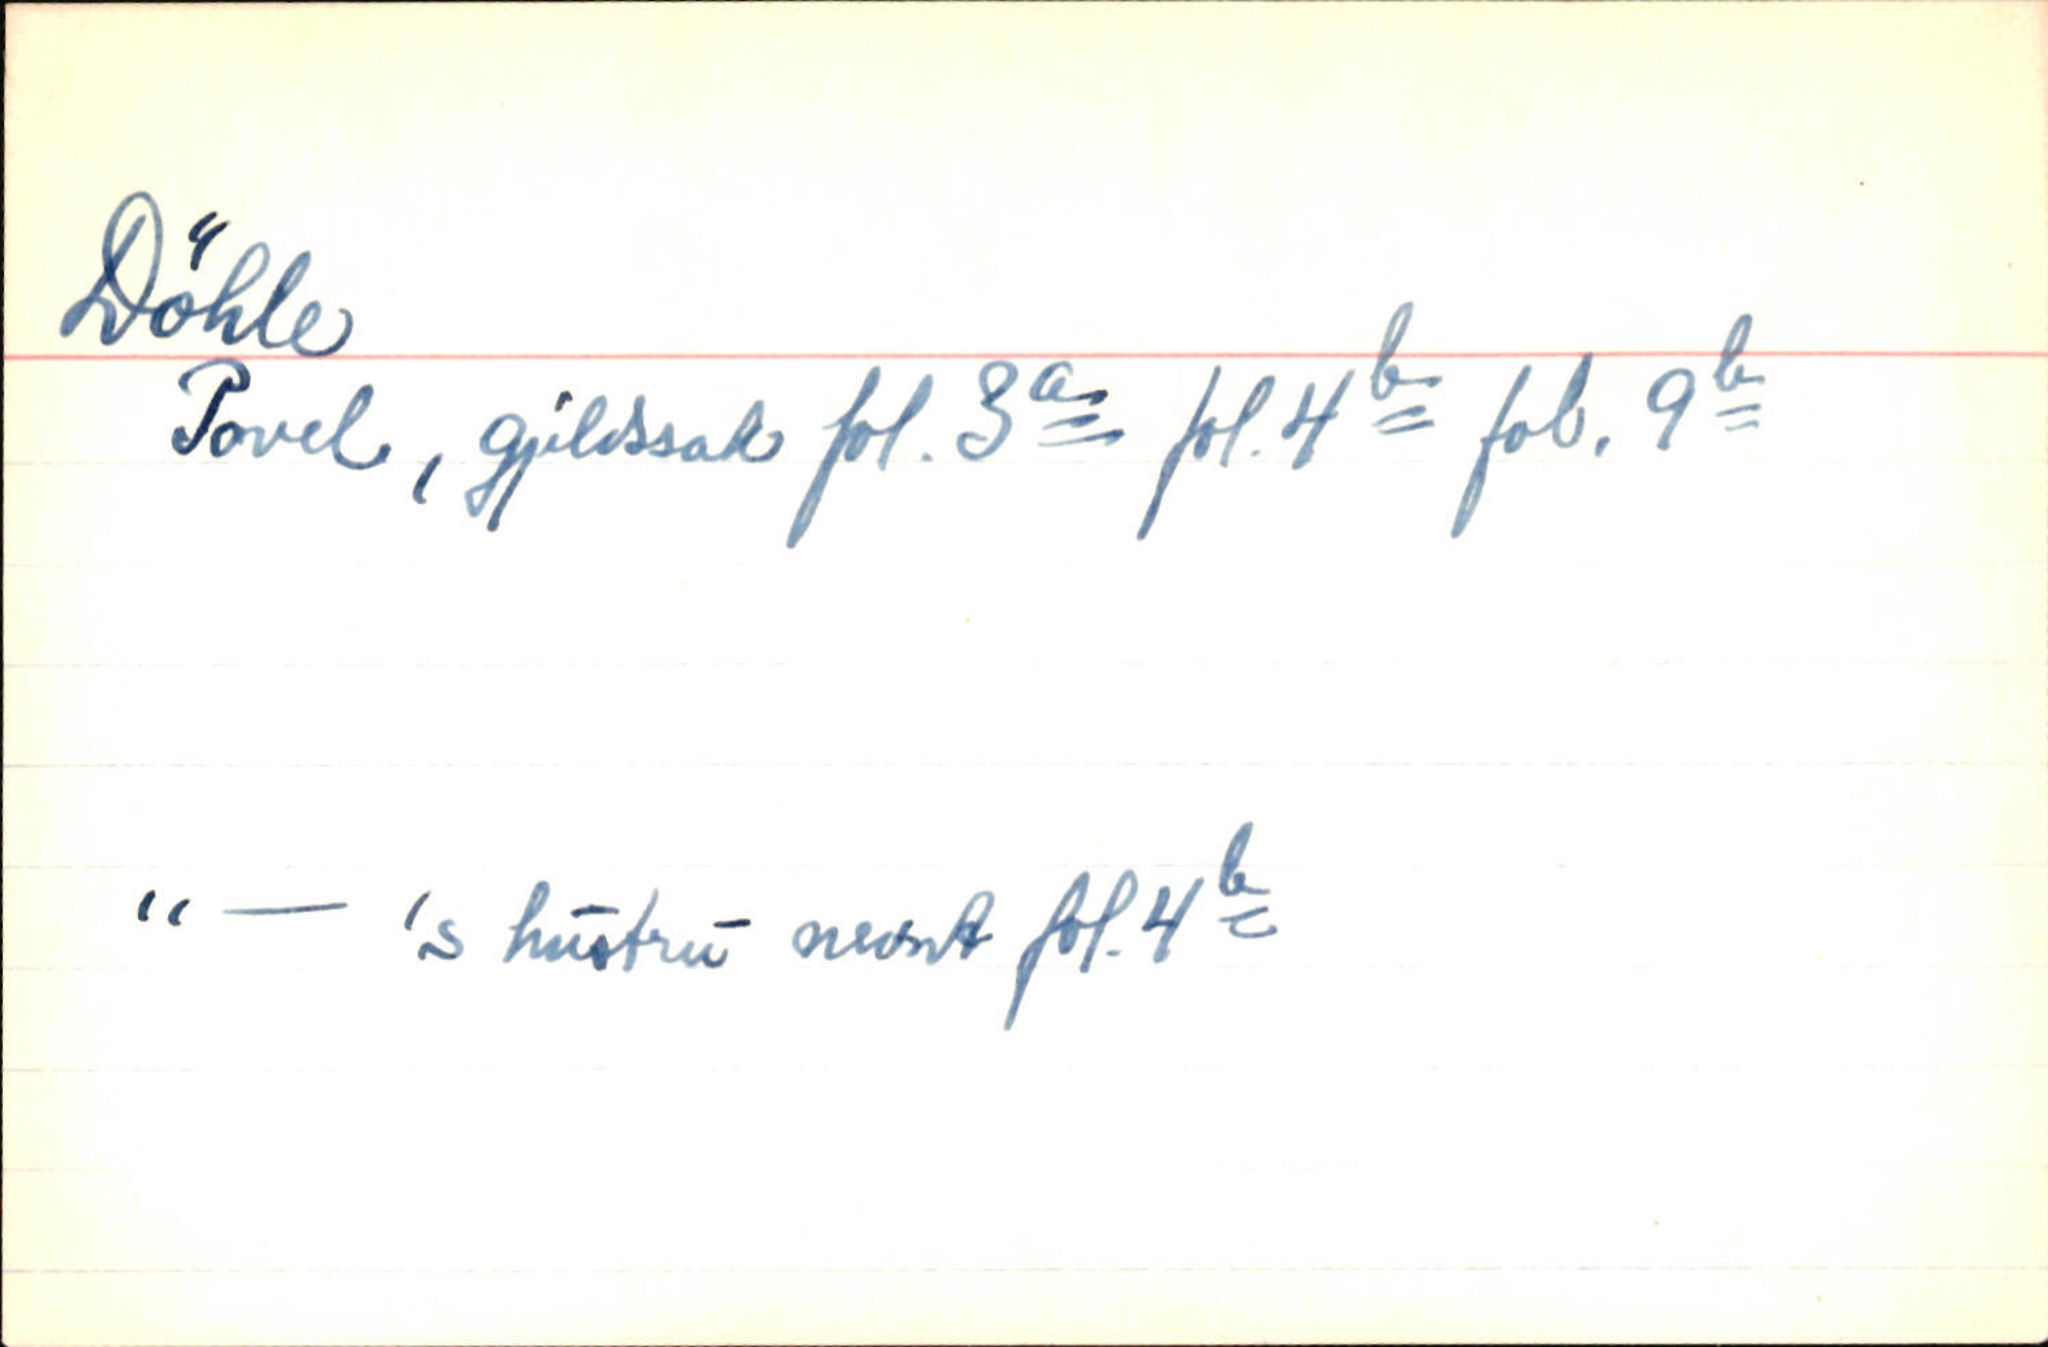 Döhle
Povel, gjeldssak fol. 3a fol. 4b fol. 9b
"— 's hustru nevnt fol. 4b